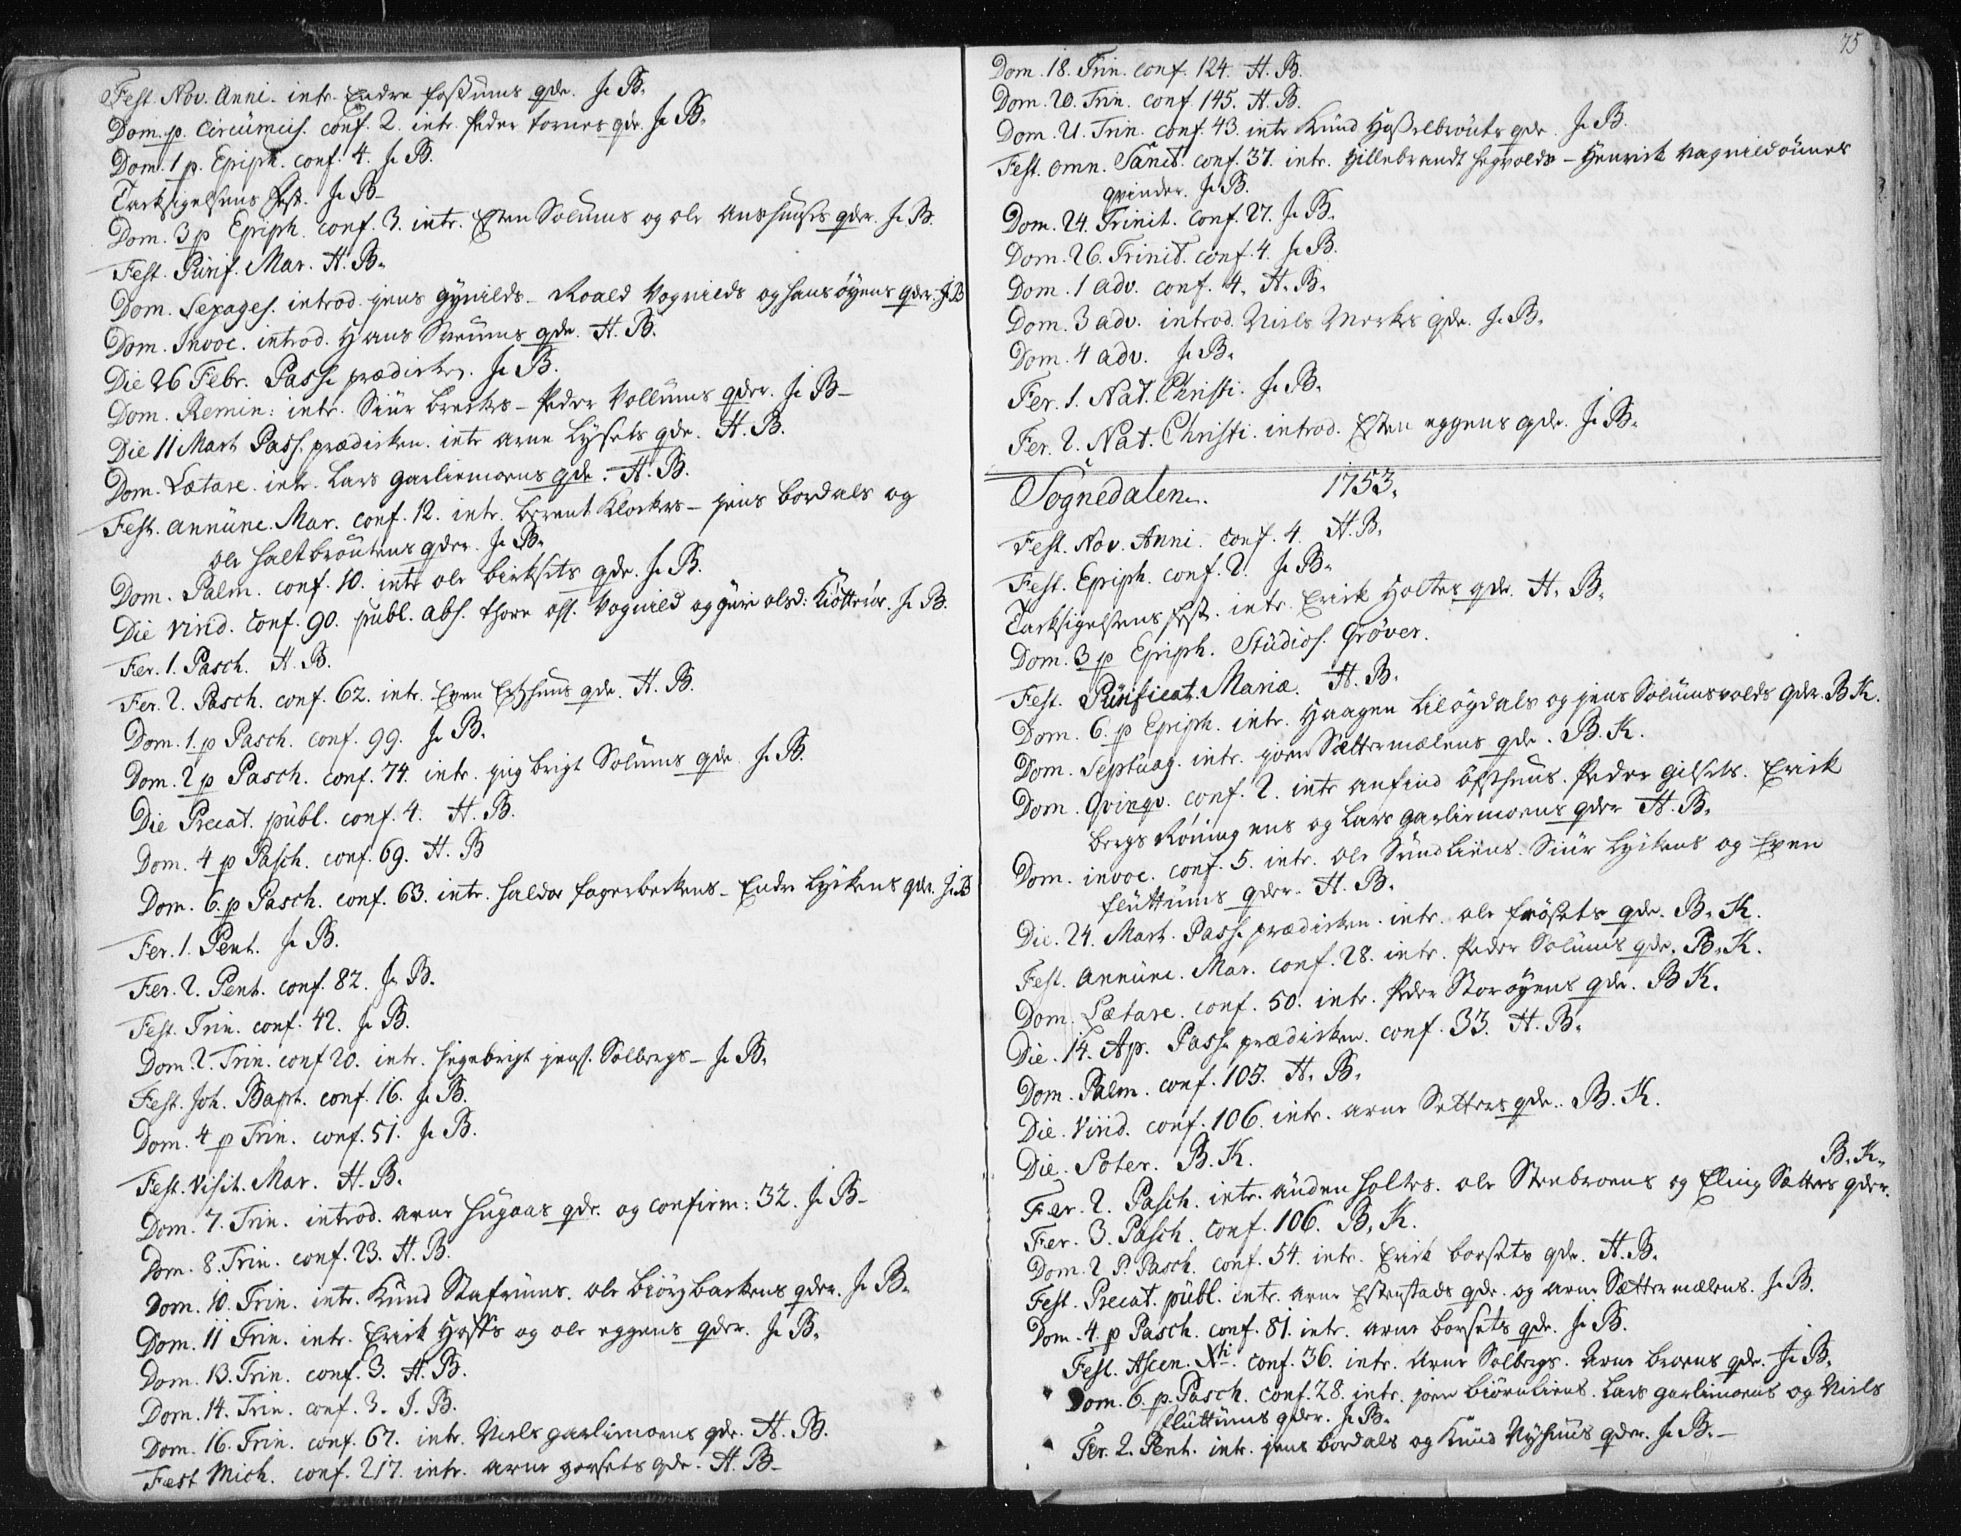 Fest. Nov. Anni. intr. Endre foßums qde. J. B.
Dom. p. Circumcis. conf. 2. intr. Peder tornes qde. J. B.
Dom. 1 p. Epiph. conf. 4. J. B.
Tacksigelsens Fest. J. B.
Dom. 3 p Epiph. conf. 3. intr. Esten Solums og ole Aushuuses qder. J. B.
Fest. Purif. Mar. H. B.
Dom. Sexages. introd. jens gynilds - Roald Vognilds og hans öyens qder. J. B
Dom. Invoc. introd. Hans Sveums qde. H. B.
Die 26 Febr. Pass. prædiken. J. B.
Dom. Remin: intr. Siur brecks - Peder Vollums qder. J. B.
Die 11 Mart Pass. prædicken. intr arne Lysets qde. H. B.
Dom. Lætare. intr. Lars garliemoens qde. H. B.
Fest. annunc. Mar. conf. 12. intr. berent Klockers - jens bordals og
ole haltbroutens qder. J. B.
Dom. Palm. conf. 10. intr ole birksets qde. J. B.
Die virid. conf. 90. publ. abs. thore ols. Vognild og guri olsd: Kiötteröe. J. B.
Fer. 1. Pasch. H. B.
Fer. 2. Pasch. conf. 62. intr. Even Eshuus qde. H. B.
Dom. 1. p Pasch. conf. 99. J. B.
Dom. 2 p Pasch. conf. 74. intr. ingbrigt Solums qde. J. B.
Die Precat. publ. conf. 4. H. B.
Dom. 4 p Pasch. conf. 69. H. B
Dom. 6. p Pasch. conf. 63. intr. haldor fagerbeckens - Endre Lyckens qder. J. B
Fer. 1. Pent. J. B.
Fer. 2. Pent. conf. 82. J. B.
Fest. Trin. conf. 42. J. B.
Dom. 2. Trin. conf 20. intr. Ingebrigt jens. Solbergs - J. B.
Fest. Joh. Bapt. conf. 16. J. B.
Dom. 4 p Trin. conf. 51. J. B.
Fest. Visit. Mar. H. B.
Dom. 7. Trin. introd. arne hugaas qde. og confirm: 32. J. B.
Dom. 8. Trin. conf. 23. H. B.
Dom. 10. Trin. intr. Knud Stafrums. ole biörgbackens qder. J. B.
Dom. 11 Trin. intr. Erick Hoffs og ole eggens qder. J. B.
Dom. 13. Trin. conf. 3. H. B.
Dom. 14. Trin. conf. 3. J. B.
Dom. 16. Trin. conf. 67. intr. Niels garliemoens qde. H. B.
Fest Mich. conf. 217. intr. arne gorsets qde. H. B.
75
Dom. 18. Trin. conf. 124. H. B.
Dom. 20. Trin. conf. 145. H. B.
Dom. 21. Trin. conf. 43. intr Knud Haßelbrouts qde. J. B.
Fest. omn. Sanct. conf. 37. intr. Hillebrandt hegvolds - Henrich Vagnildöunes
qvinder. J. B.
Dom. 24. Trinit. conf. 27. J. B.
Dom. 26. Trinit. conf. 4. J. B.
Dom. 1 adv. conf. 4. H. B.
Dom. 3 adv. introd. Niels Morks qde. J. B.
Dom. 4 adv. J. B.
Fer. 1. Nat. Christi. J. B.
Fer. 2. Nat. Christi. introd. Esten eggens qde. J. B.
Sognedalen. 1753.
Fest. Nov. Anni. conf. 4. H. B.
Fest. Epiph. conf. 2. J. B.
Tacksigelsens fest. intr. Erick Holtes qde. H. B.
Dom. 3 p Epiph. Studios. Gröver.
Fest. Purificat. Mariæ. H. B.
Dom. 6. p Epiph. intr. Haagen Lilögdals og jens Solumsvolds qder. B K.
Dom. Septuag. intr. joen Sættermælens qde. B. K.
Dom. Qvinqv. conf. 2. intr anfind öfsthuus. Peder gilsets. Erick
bergs Röning ens og Lars garliemoens qder H. B.
Dom. invoc. conf. 5. intr. ole Sundliens. Siur Lyckens og Even
fluttums qder. H. B.
Die. 24. Mart. Pass. prædicken. intr. ole frösets qde. B. K.
Fest. annunc. Mar. conf. 28. intr. Peder Solums qde. B. K.
Dom. Lætare. conf. 50. intr. Peder Storöyens qde. B K.
Die. 14. Ap. Pass. prædicken. conf. 33. H. B.
Dom. Palm. conf. 105. H. B.
Die. Virid. conf. 106. intr. arne Setters qde. B. K.
Die. Soter. B. K.
Fer. 2. Pasch. intr. auden holtes. ole Stenbroens og Eling Sætters qder. B. K.
Fer. 3. Pasch. conf. 106. B. K.
Dom. 2 P. Pasch. conf. 54. intr. Erick borsets qde. H. B.
Fest. Precat. publ. intr. arne Estenstads qde. og arne Sættermælens. J. B.
Dom. 4. p Pasch. conf. 81. intr. arne borsets qde. J. B.
Fest. Ascen. Xti. conf. 36. intr. Arne Solbergs. Arne broens qde. J. B.
Dom. 6. p. Pasch. conf. 28. intr. joen biörnliens. Lars garlimoens og Niels
fluttums qder. J. B.
Fer. 2. Pent. intr. jens bordals og Knud Nyhuus qder. J. B.